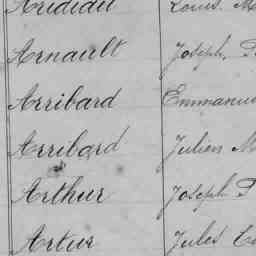 Louis
Arnault Joseph
Arribard Emmanue
Arribard Julien M
Arthur Joseph P
Artur Jules